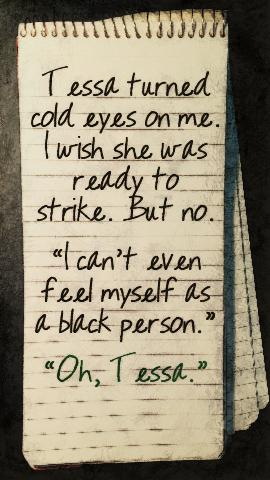 Tessa turned
cold eyes on me.
I wish she was
ready to
strike. But no.
“I can't even
feel myself as
a black person.”
“Oh, Tessa.”